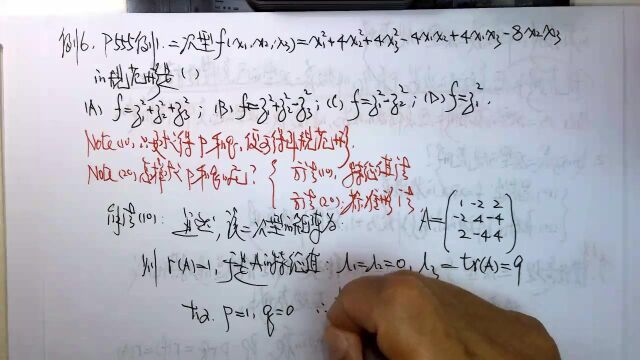 例6. P55例1. 二次型f(x₁,x₂,x₃)=x₁²+4x₂²+4x₃²-4x₁x₂+4x₁x₃-8x₂x₃
的规范形是( )
(A) f=y₁²+y₂²+y₃²; (B) f=y₁²+y₂²-y₃²; (C) f=y₁²-y₂²; (D) f=y₁².
Note(1): 求得p和q, 便可得到规范形.
Note(2): 怎样求p和q呢? { 方法(1): 特征值法
方法(2): 标准形法
解法(1): 二次型的矩阵为: A=(1 -2 2
-2 4 -4
2 -4 4)
则 r(A)=1, 于是A的特征值: λ₁=λ₂=0, λ₃=tr(A)=9
故 p=1, q=0 ∴